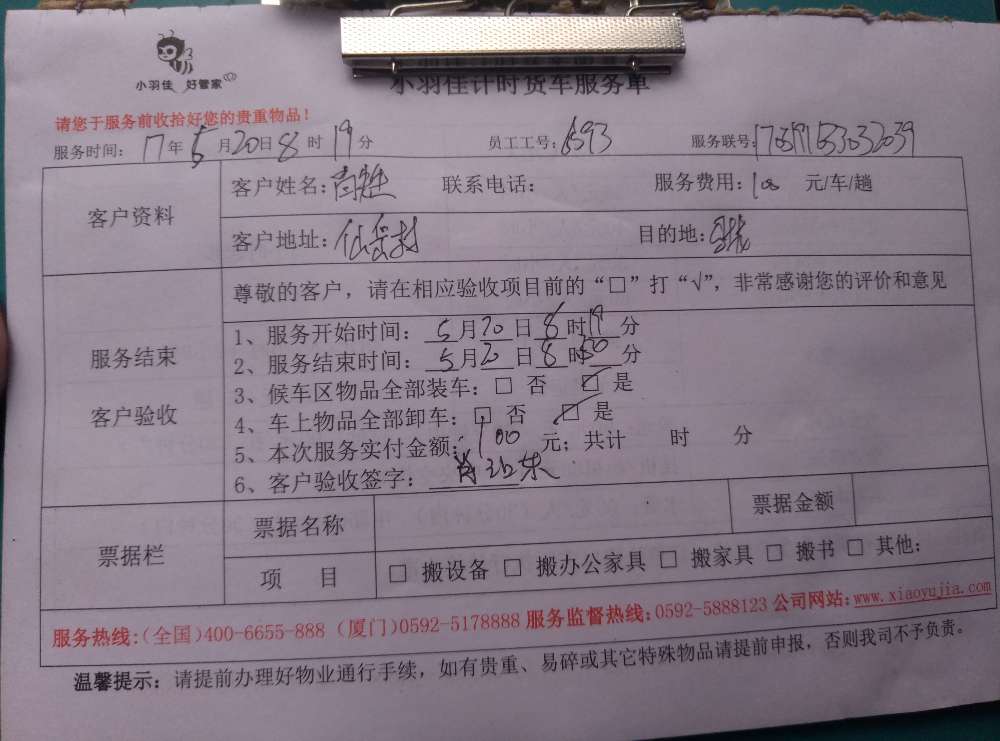 小羽佳 好管家
小羽佳计时货车服务单
请您于服务前收拾好您的贵重物品！
服务时间：17年5月20日8时19分 员工工号：6593 服务联号：
客户资料
客户姓名： 联系电话： 服务费用：100 元/车/趟
客户地址：仙岳村 目的地：
服务结束
客户验收
尊敬的客户，请在相应验收项目前的“□”打“√”，非常感谢您的评价和意见
1、服务开始时间：5月20日8时19分
2、服务结束时间：5月20日8时50分
3、候车区物品全部装车：□ 否 ☑ 是
4、车上物品全部卸车：□ 否 ☑ 是
5、本次服务实付金额：100 元；共计 时 分
6、客户验收签字：
票据栏
票据名称 票据金额
项 目 □ 搬设备 □ 搬办公家具 □ 搬家具 □ 搬书 □ 其他：
服务热线：（全国）400-6655-888（厦门）0592-5178888 服务监督热线：0592-5888123 公司网站：www.xiaoyujia.com
温馨提示：请提前办理好物业通行手续，如有贵重、易碎或其它特殊物品请提前申报，否则我司不予负责。